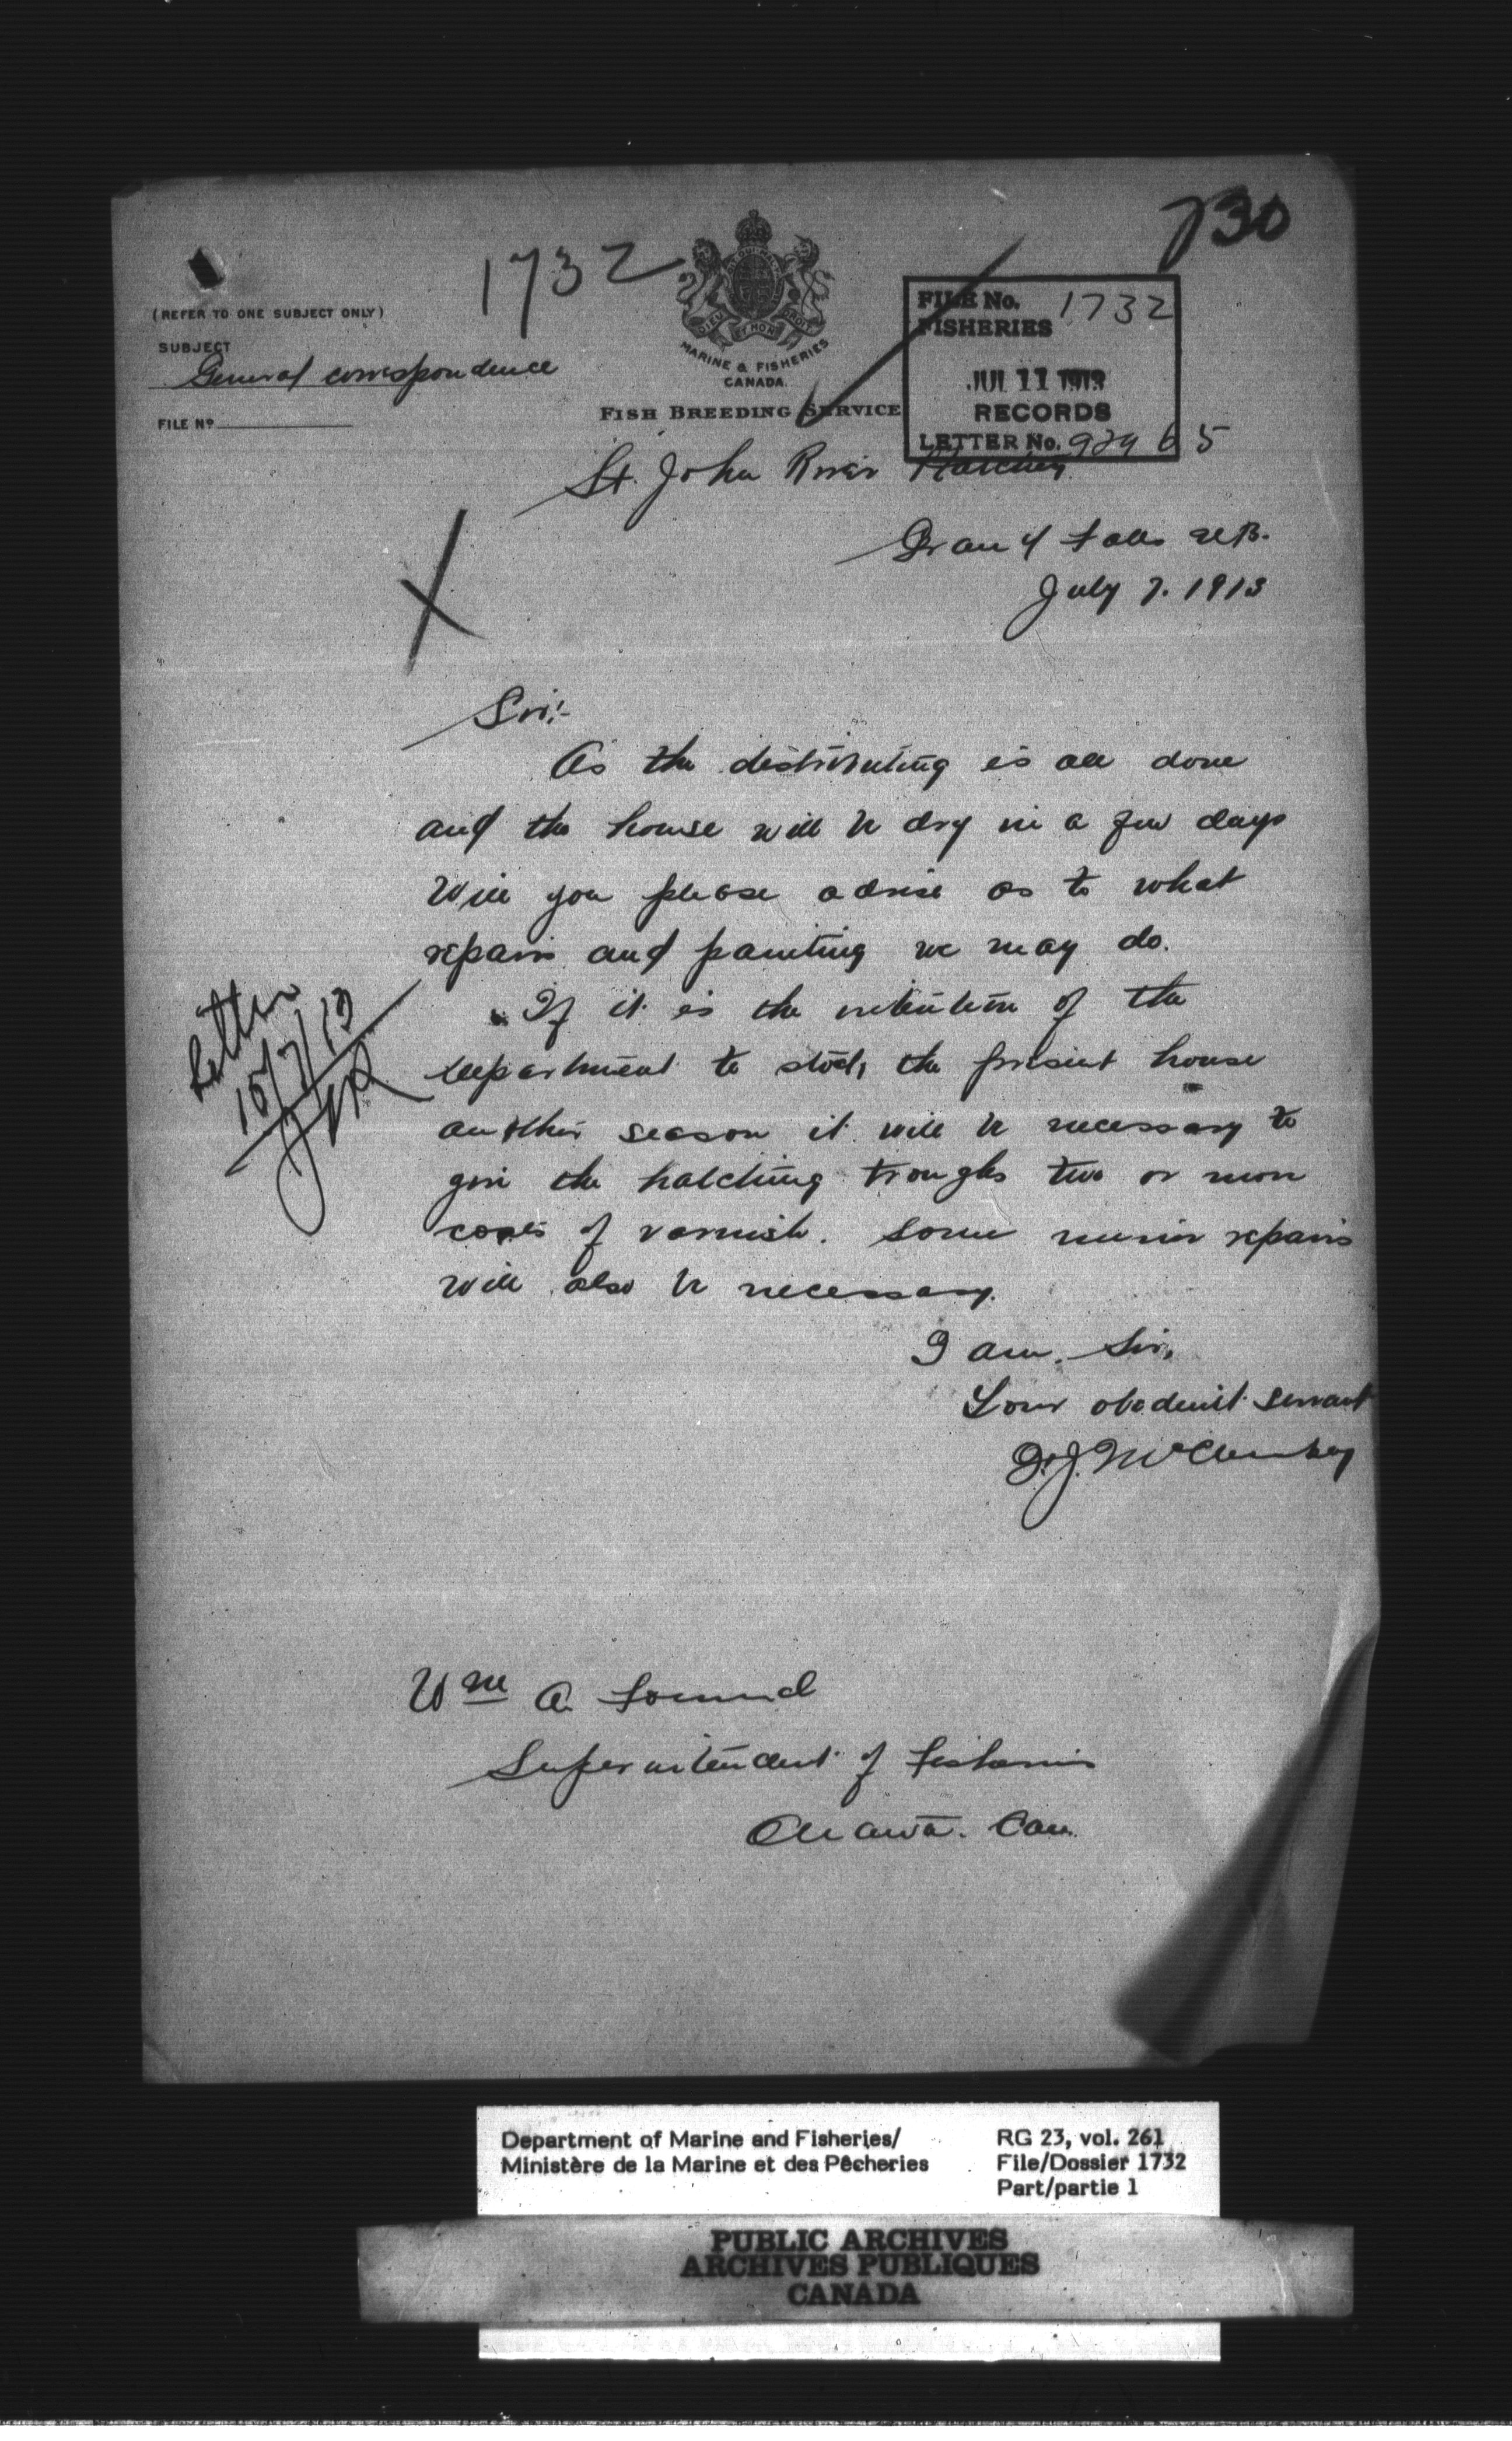 730
1732
(REFER TO ONE SUBJECT ONLY)
SUBJECT
General correspondence
FILE No
DIEU ET MON DROIT
MARINE & FISHERIES
CANADA.
FISH BREEDING SERVICE
FILE No. 1732
FISHERIES
JUL 11 1913
RECORDS
LETTER No. 92965
St. John River Hatchery
Grand Falls N.B.
July 7. 1913
Sir:-
As the distributing is all done
and the house will be dry in a few days
Will you please advise as to what
repairs and painting we may do.
If it is the intention of the
department to stock the present house
another season it will be necessary to
give the hatching troughs two or more
coats of varnish. Some minor repairs
will also be necessary.
I am, Sir,
Your obedient servant
J. McCluskey
Letter
15/7/13
Wm A Found
Superintendent of Fisheries
Ottawa. Can.
Department of Marine and Fisheries/
Ministère de la Marine et des Pêcheries
RG 23, vol. 261
File/Dossier 1732
Part/partie 1
PUBLIC ARCHIVES
ARCHIVES PUBLIQUES
CANADA